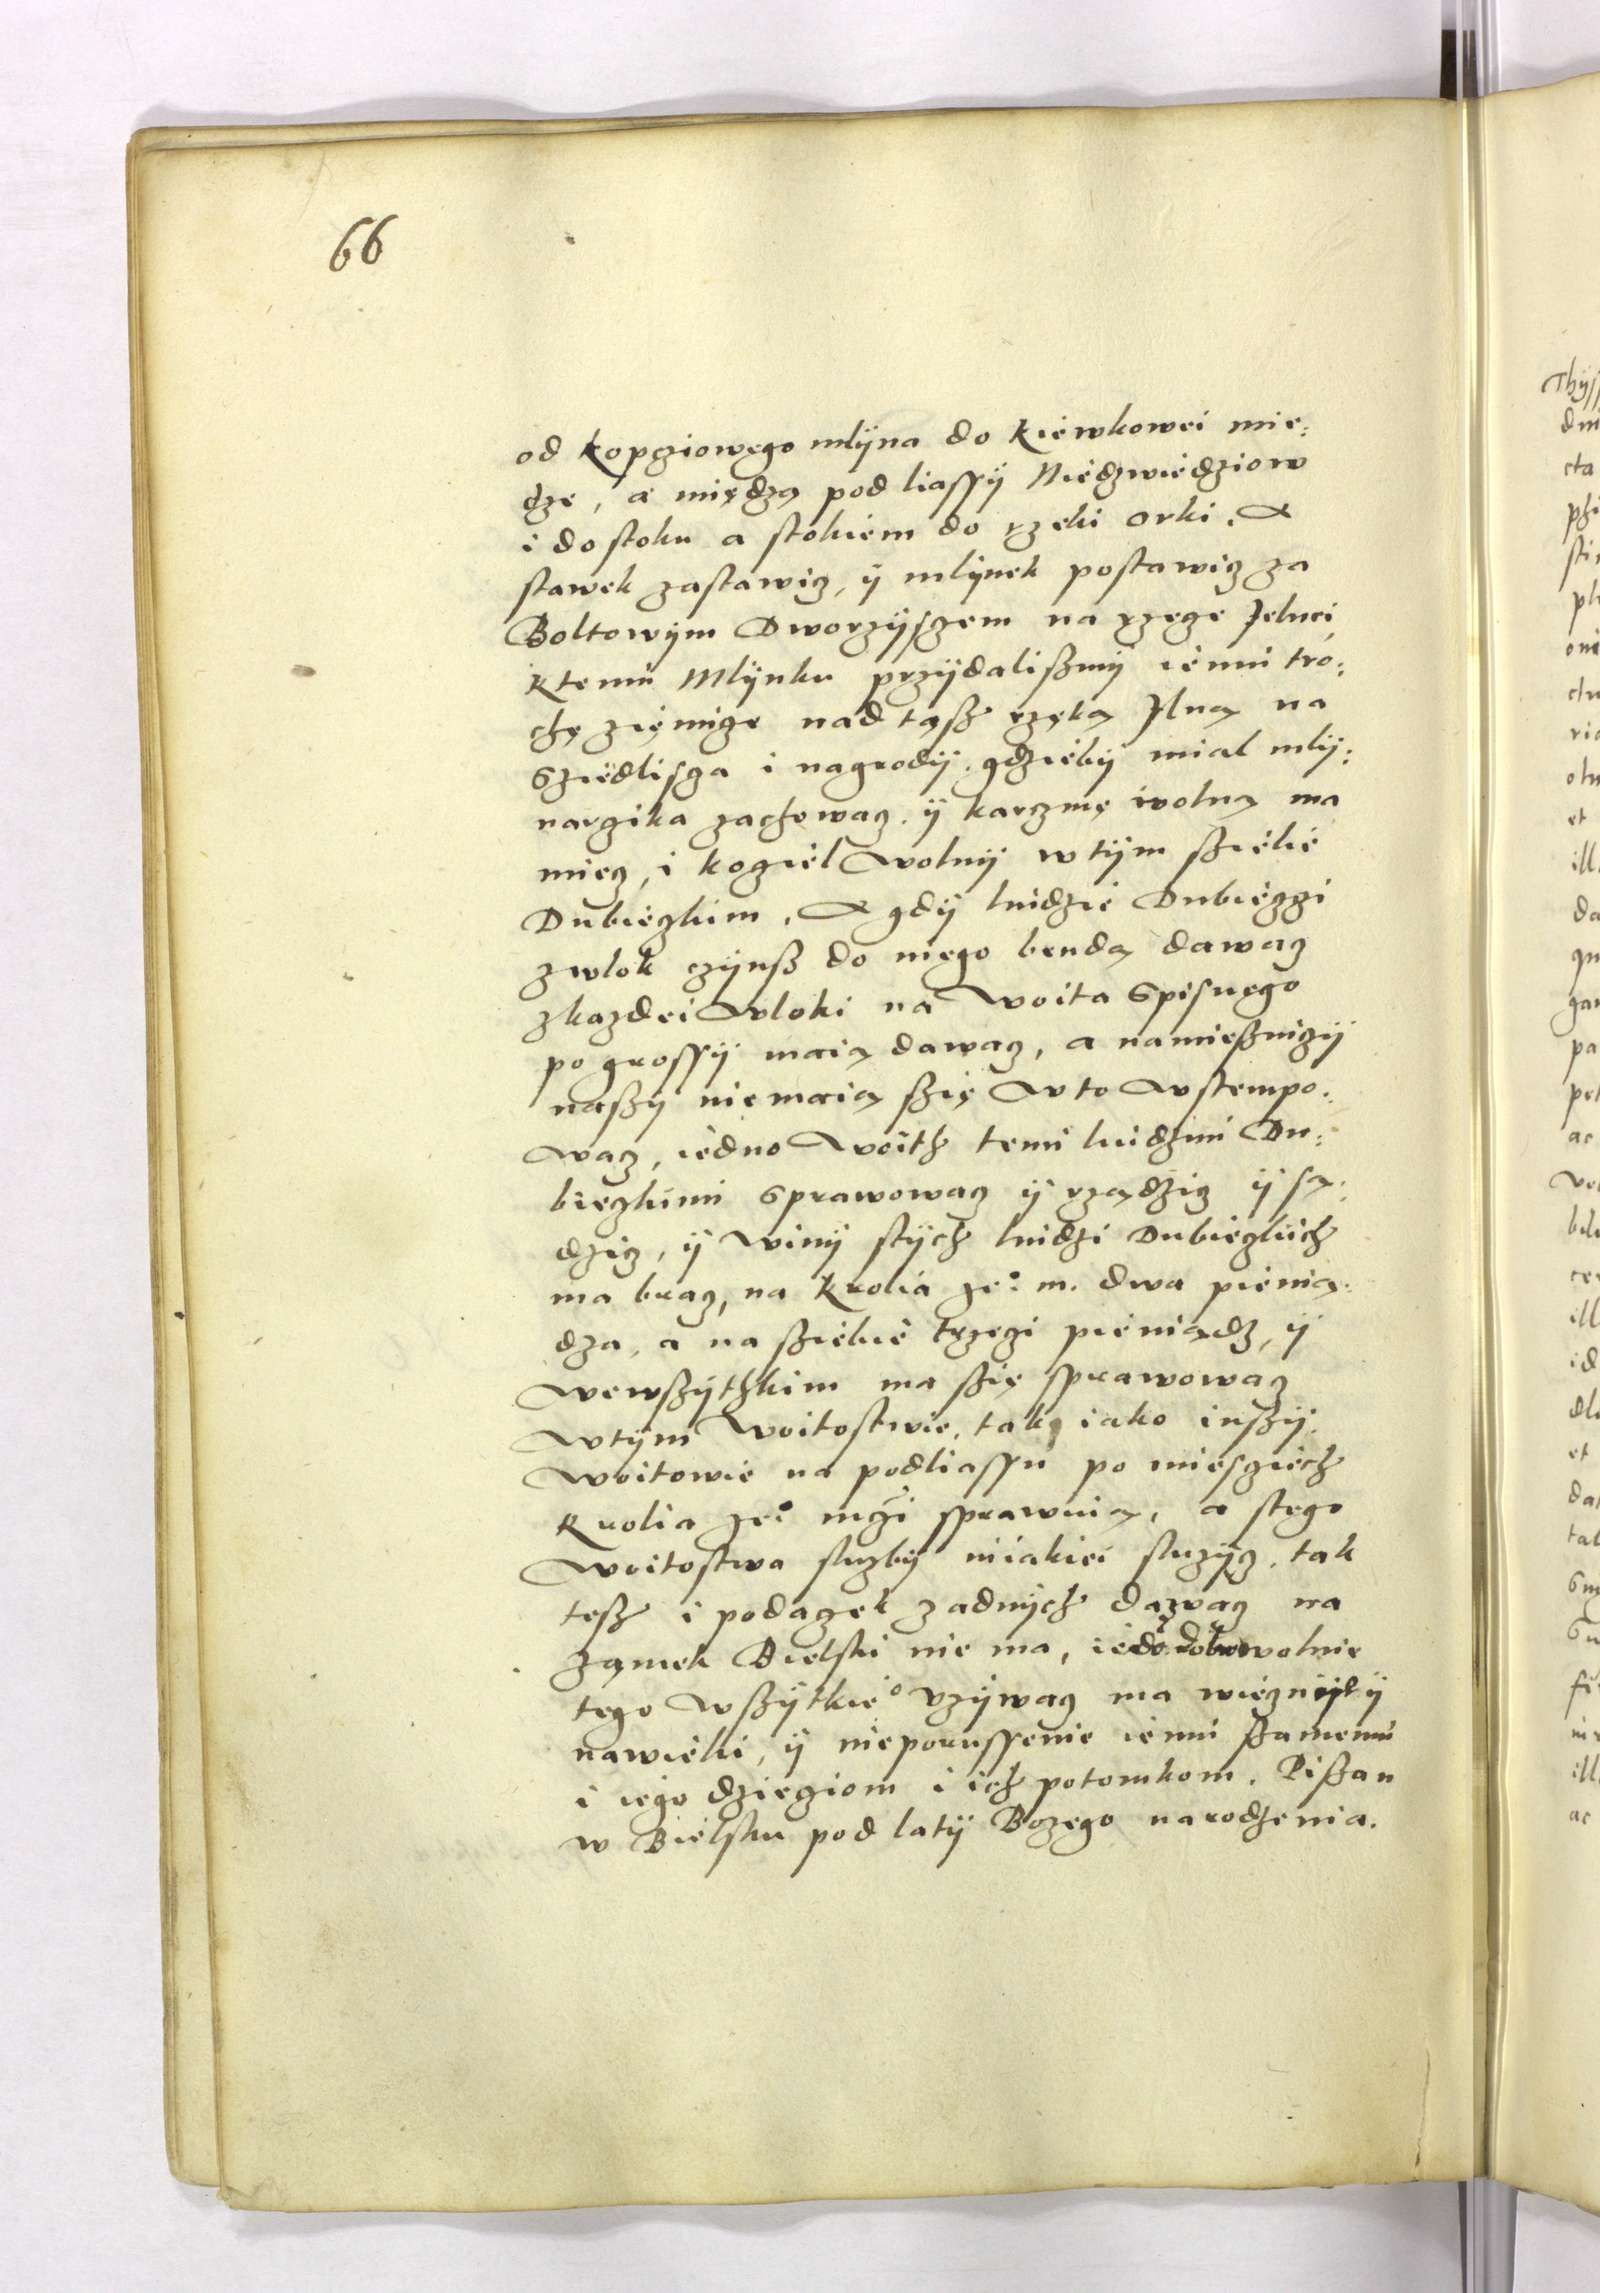 66
od Kopcziowego mlÿna do Kiewkowei mie:
dze, a międzą pod liassÿ Niedzwiedziow
i do stoku a stokiem do rzeki Orki. A
stawek zastawicz, ÿ mlÿnek postawicz za
Boltowÿm Dworzÿsczem na rzecze Jelnei
Ktemu Mlÿnku przÿdaliszmÿ iemu tro:
chę ziemicze nad tąsz rzeką Jlną na
Sziedliscza i nagrodÿ. gdziebÿ mial mlÿ:
narzika zachowacz. ÿ karczmę wolną ma
miecz, i kocziel wolnÿ w tÿm szielie
Dubiczkim. A gdÿ luidzie Dubiczczi
zwlok czÿnsz do niego bendą dawacz
zkazdei wloki na Woita Spisnego
po grossÿ maią dawacz, a namiesniczÿ
naszÿ niemaią szię w to wstempo:
wacz, iedno Woith temi luidzmi Du:
biczkimi Sprawowacz ÿ rządzicz ÿ są:
dzicz, ÿ winÿ stÿch luidzi Dubiczkich
ma bracz, na Krolia Je°: m. dwa pienią:
dza, a na sziebie trzeczi pieniądz, ÿ
wewszÿthkim ma szię sprawowacz
wtÿm Woitostwie, tak iako inszÿ
woitowie na podliassu po miesczich
Krolia Je° mczi sprawuią, a stego
woitostwa sluzbÿ niiakiei sluzÿcz, tak
tesz i podaczek zadnÿch dawacz na
Zamek Bielski nie ma, iedno dobrowolnie
tego wszÿtkie° uzÿwacz ma wiecznÿlÿ
nawieki, ÿ nieporussenie iemu szamemu
i iego dziecziom i ich potomkom. Piszan
w Bielsku pod latÿ Bozego narodzenia.